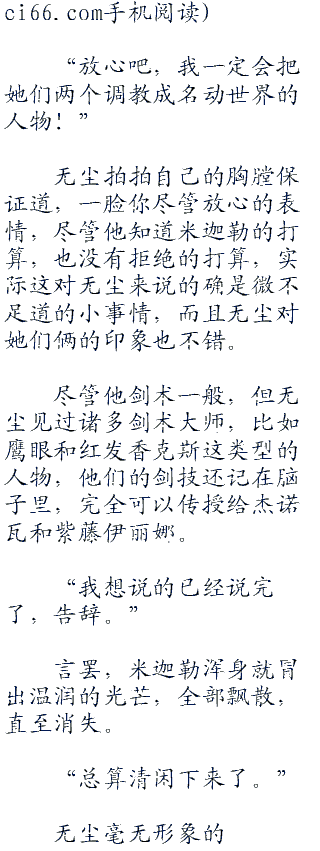 ci66.com手机阅读)
“放心吧，我一定会把
她们两个调教成名动世界的
人物！”
无尘拍拍自己的胸膛保
证道，一脸你尽管放心的表
情，尽管他知道米迦勒的打
算，也没有拒绝的打算，实
际这对无尘来说的确是微不
足道的小事情，而且无尘对
她们俩的印象也不错。
尽管他剑术一般，但无
尘见过诸多剑术大师，比如
鹰眼和红发香克斯这类型的
人物，他们的剑技还记在脑
子里，完全可以传授给杰诺
瓦和紫藤伊丽娜。
“我想说的已经说完
了，告辞。”
言罢，米迦勒浑身就冒
出温润的光芒，全部飘散，
直至消失。
“总算清闲下来了。”
无尘毫无形象的